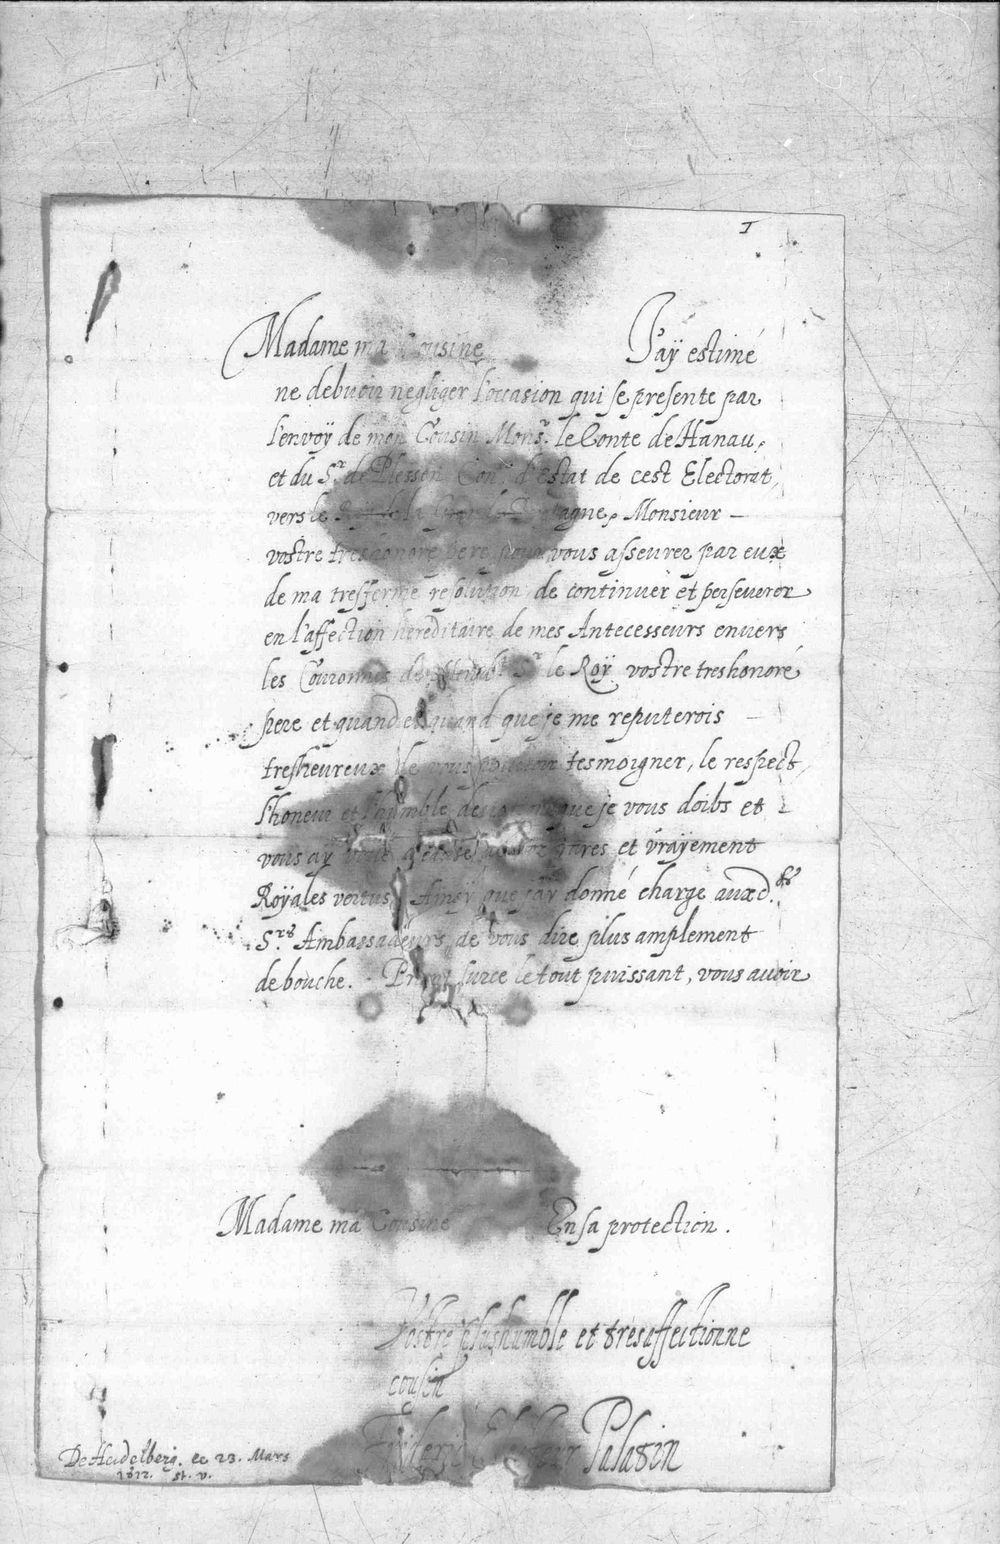 I
Madame ma Cousine J'aÿ estimé
ne debuoir negliger l'occasion qui se presente par
l'envoÿ de mon Cousin Monsr. le Conte de Hanau,
et du Sr. de Plessen Con. d'Estat de cest Electorat,
vers le Roy de la Grande Bretagne, Monsieur
vostre treshonoré pere, pour vous asseurer par eux
de ma tresferme resolution de continuer et perseverer
en l'affection hereditaire de mes Antecesseurs envers
les Couronnes de Sr le Roÿ vostre treshonoré
pere et quand et quand que je me reputerois
tresheureux de vous pouvoir tesmoigner, le respect,
l'honeur et l'humble que je vous doibs et
vous aÿ voué à et vraÿement
Roÿales vertus, Ainsÿ que j'aÿ donné charge auxd.
Srs Ambassadeurs de vous dire plus amplement
de bouche. Priant surce le tout puissant, vous avoir
Madame ma Cousine En sa protection.
Vostre plushumble et tresaffectionne
cousin
Frideric Electeur Palatin
De Heidelberg. le 23. Mars
1612. st. v.